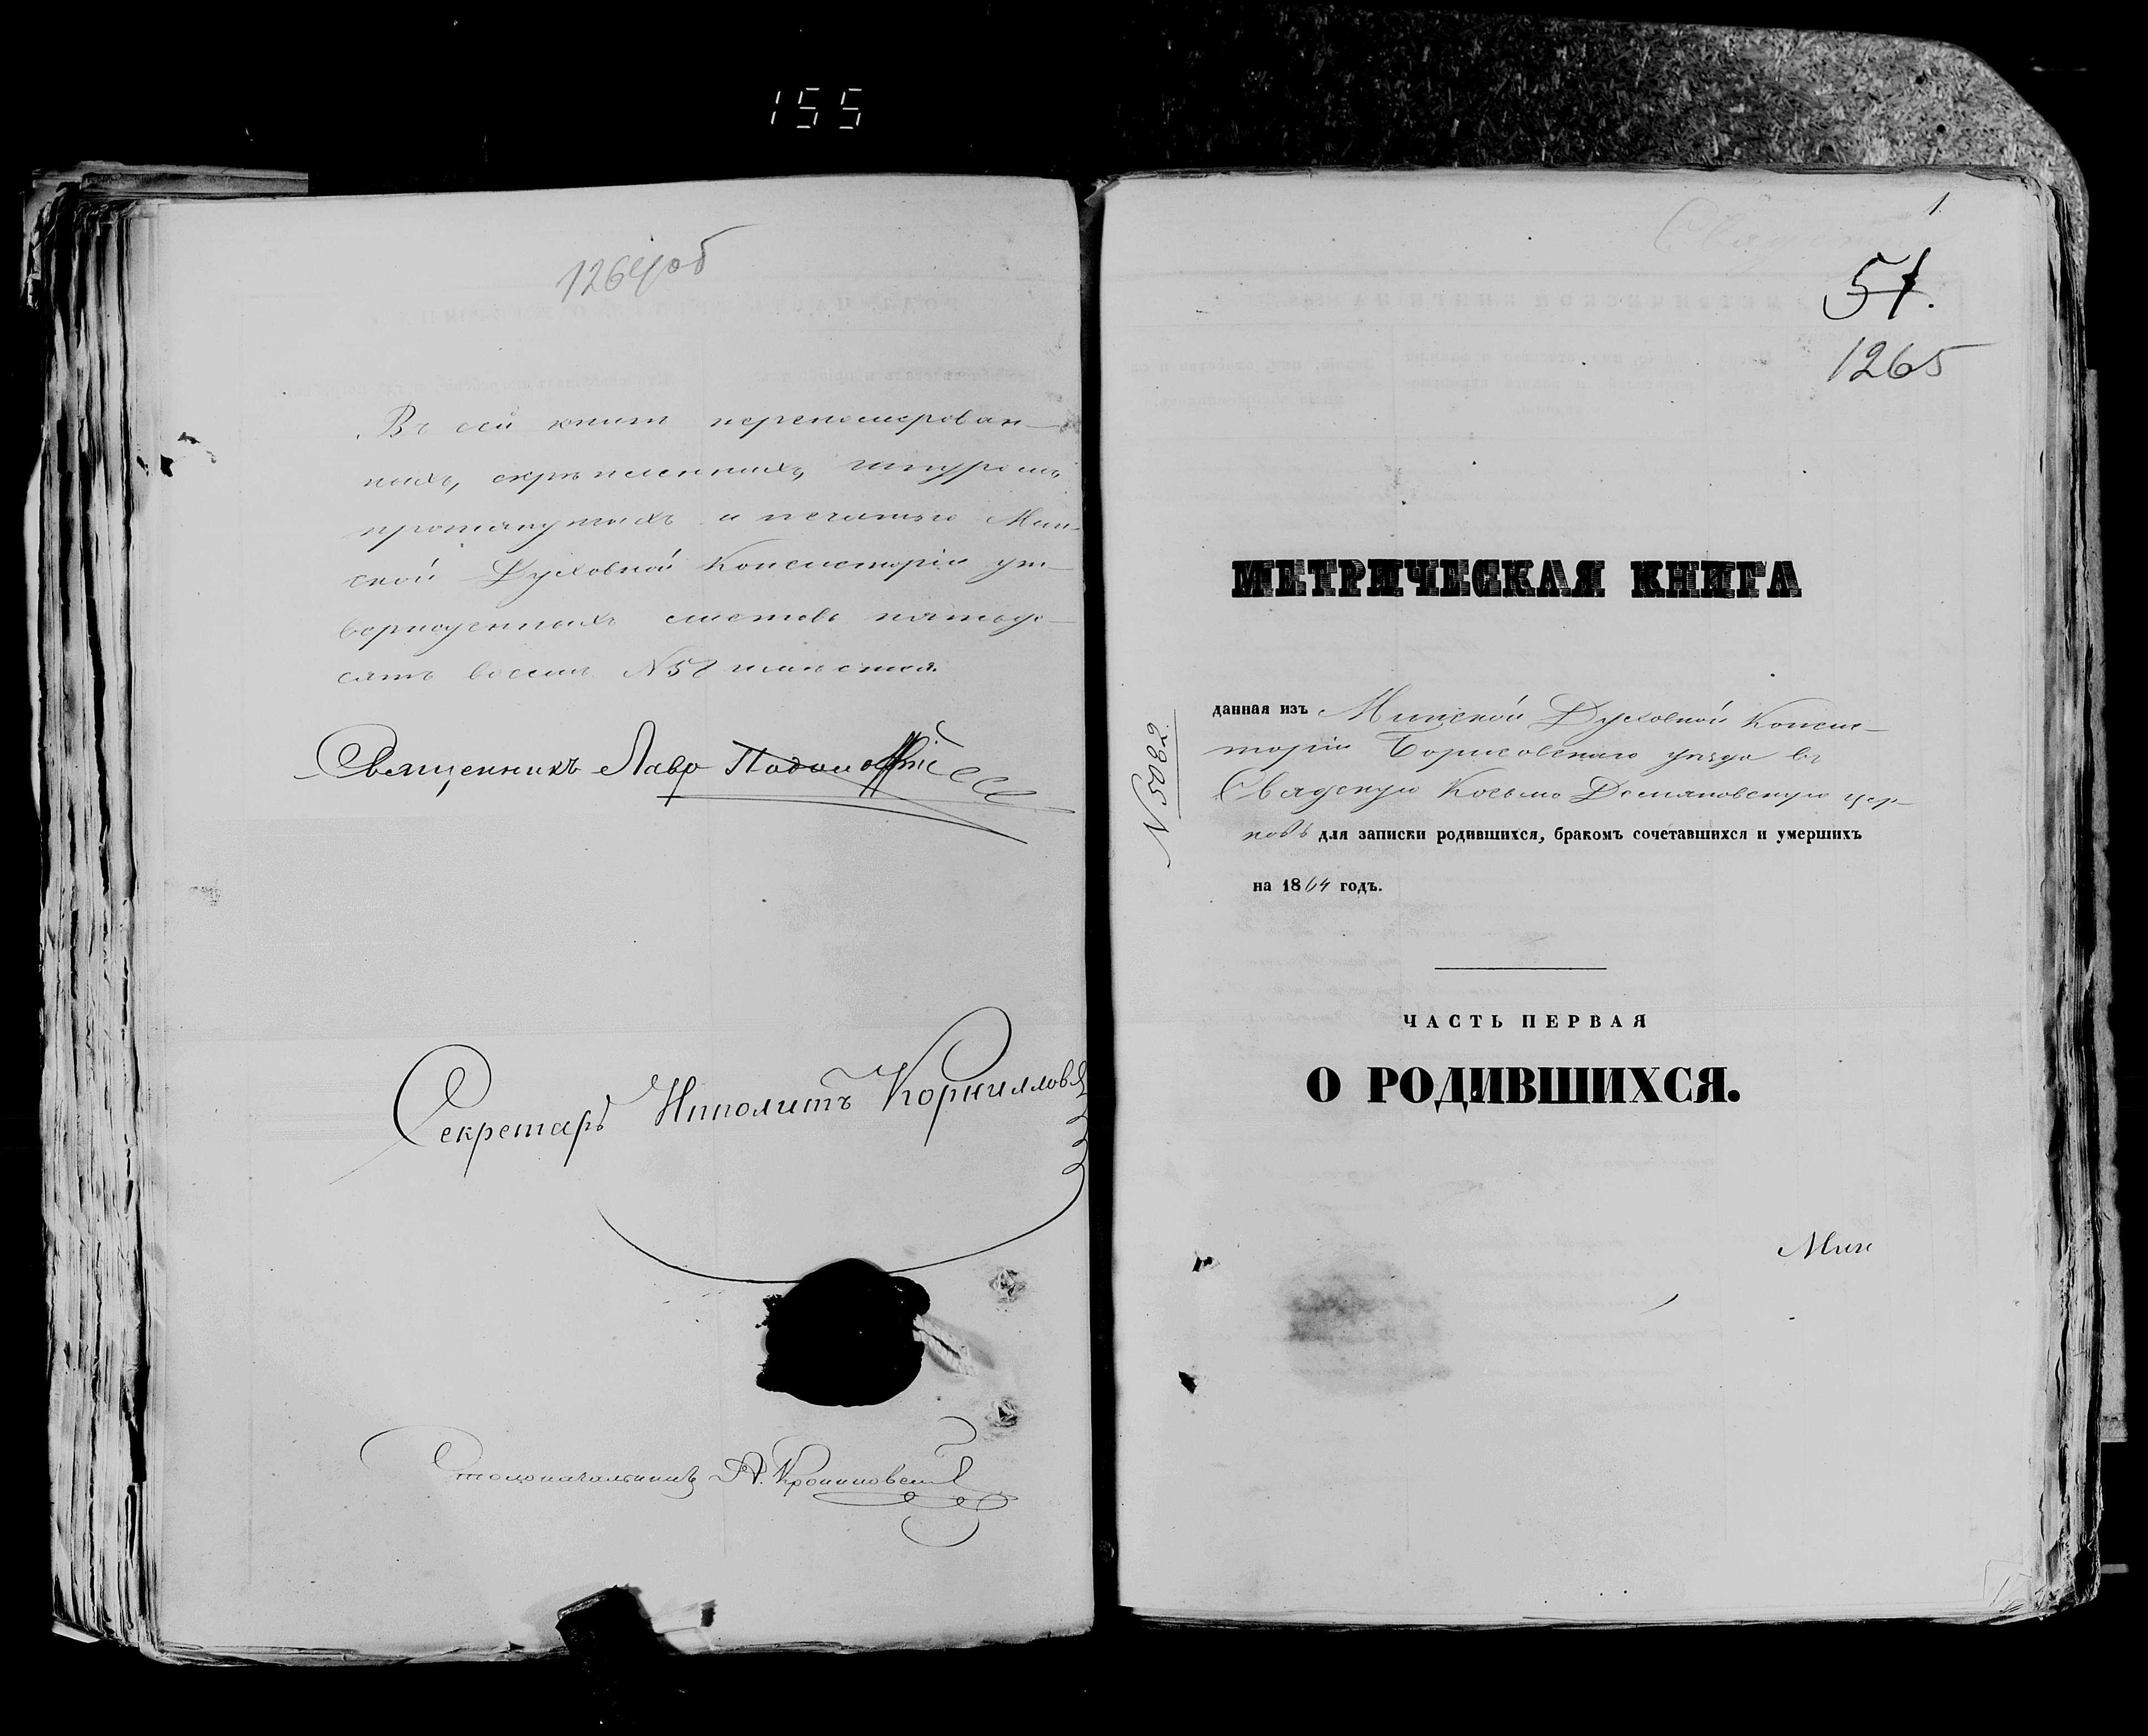 155
1264об
Въ сей книгѣ перенумерован-
ныхъ, скрѣпленныхъ, шнуромъ
протянутыхъ и печатью Мин-
ской Духовной Консисторіи ут-
вержденныхъ листовъ пятьде-
сятъ восемь N58 листовъ.
Священникъ Лавр
Секретарь Ипполитъ Корнилловъ
Столоначальникъ А.
1.
51.
1265
МЕТРИЧЕСКАЯ КНИГА
данная изъ Минской Духовной Консис-
торіи Борисовскаго уѣзда въ
Свядскую Косьмо Демьяновскую цер-
ковь для записки родившихся, бракомъ сочетавшихся и умершихъ
на 1864 годъ.
N 5082.
ЧАСТЬ ПЕРВАЯ
О РОДИВШИХСЯ.
Мин